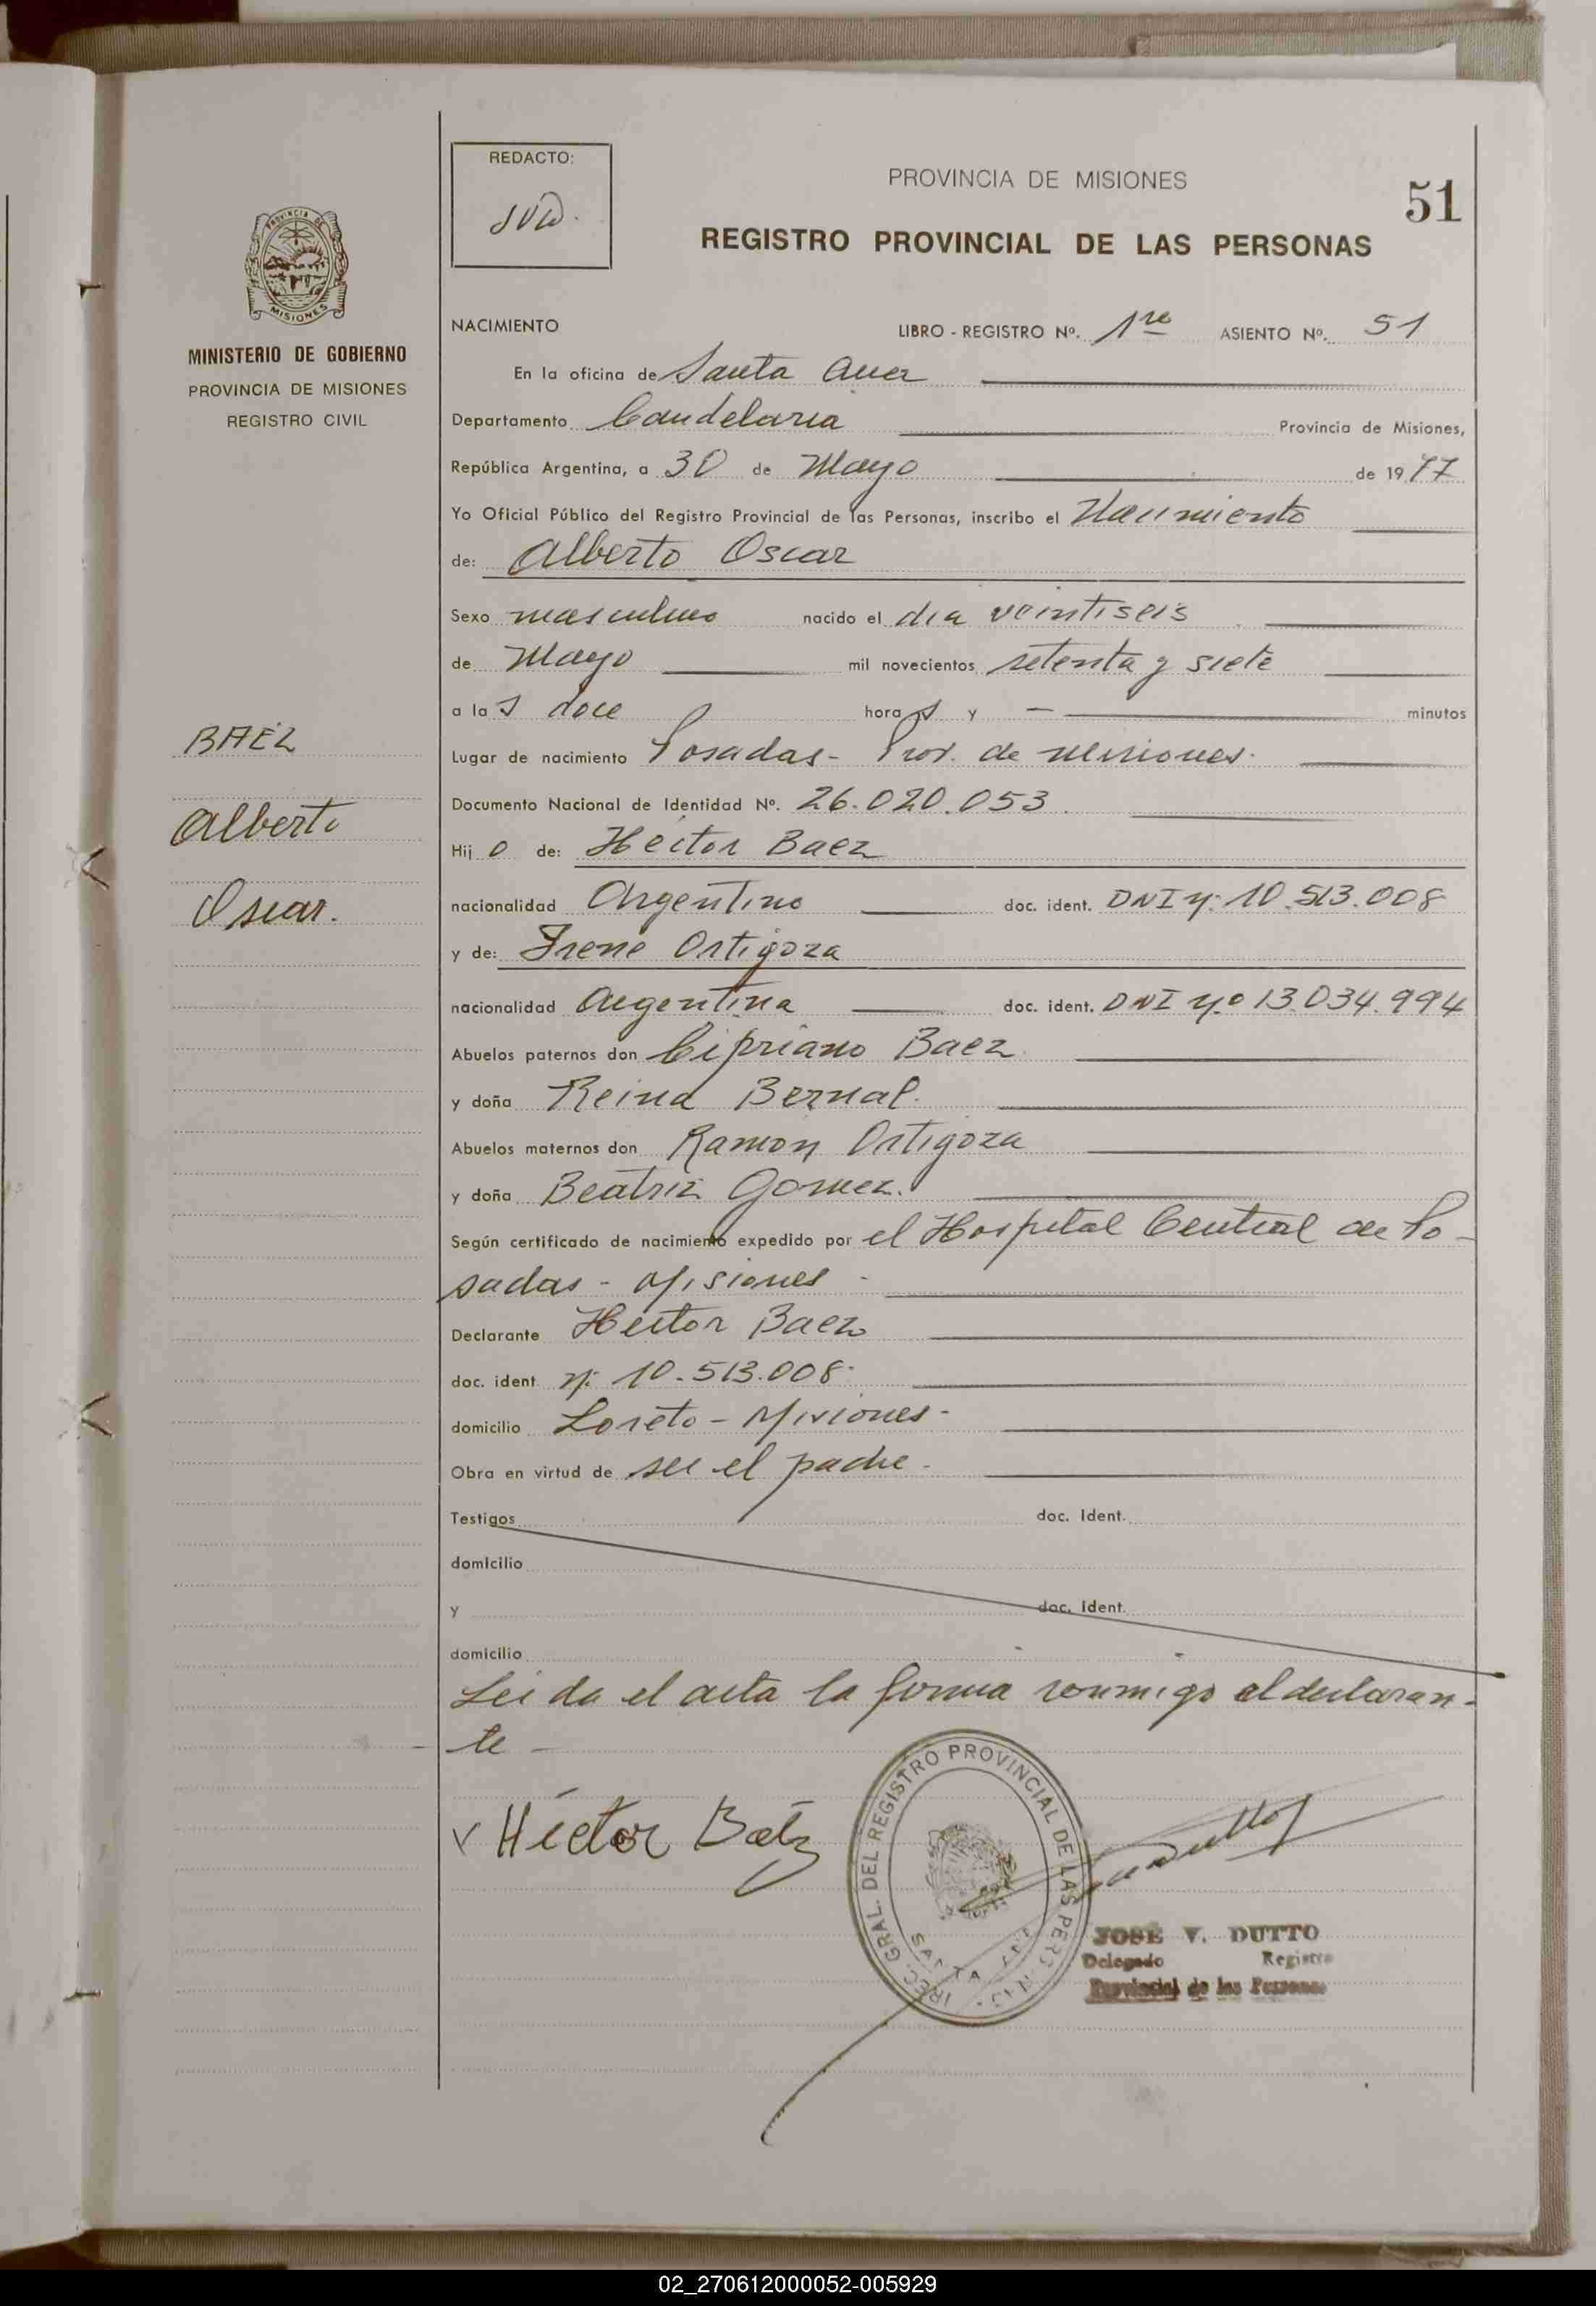 REDACTO:
JVD.
PROVINCIA DE MISIONES
51
REGISTRO PROVINCIAL DE LAS PERSONAS
PROVINCIA DE
MISIONES
MINISTERIO DE GOBIERNO
PROVINCIA DE MISIONES
REGISTRO CIVIL
NACIMIENTO LIBRO - REGISTRO Nº. 1re ASIENTO Nº. 51
En la oficina de Santa Ana
Departamento Candelaria Provincia de Misiones,
República Argentina, a 30 de Mayo de 1977
Yo Oficial Público del Registro Provincial de las Personas, inscribo el Nacimiento
de: Alberto Oscar
Sexo masculino nacido el dia veintiseis
de Mayo mil novecientos setenta y siete
a las doce horas y — minutos
BAEZ
Lugar de nacimiento Posadas - Prov. de Misiones.
Documento Nacional de Identidad Nº. 26.020.053
Alberto
Hijo de: Hector Baez
Oscar.
nacionalidad Argentino doc. ident. DNI Nº 10.513.008
y de: Irene Ortigoza
nacionalidad Argentina doc. ident. DNI Nº 13.034.994
Abuelos paternos don Cipriano Baez
y doña Reina Bernal.
Abuelos maternos don Ramon Ortigoza
y doña Beatriz Gomez.
Según certificado de nacimiento expedido por el Hospital Central de Po-
sadas - Misiones -
Declarante Hector Baez
doc. ident Nº 10.513.008.
domicilio Loreto - Misiones -
Obra en virtud de ser el padre -
Testigos doc. Ident.
domicilio
y doc. Ident.
domicilio
Leida el acta la firma conmigo el declaran-
te -
Héctor Baéz
DIREC. GRAL. DEL REGISTRO PROVINCIAL DE LAS PERS.
SANTA ANA
JOSÉ V. DUTTO
Delegado Registro
Provincial de las Personas
02_270612000052-005929